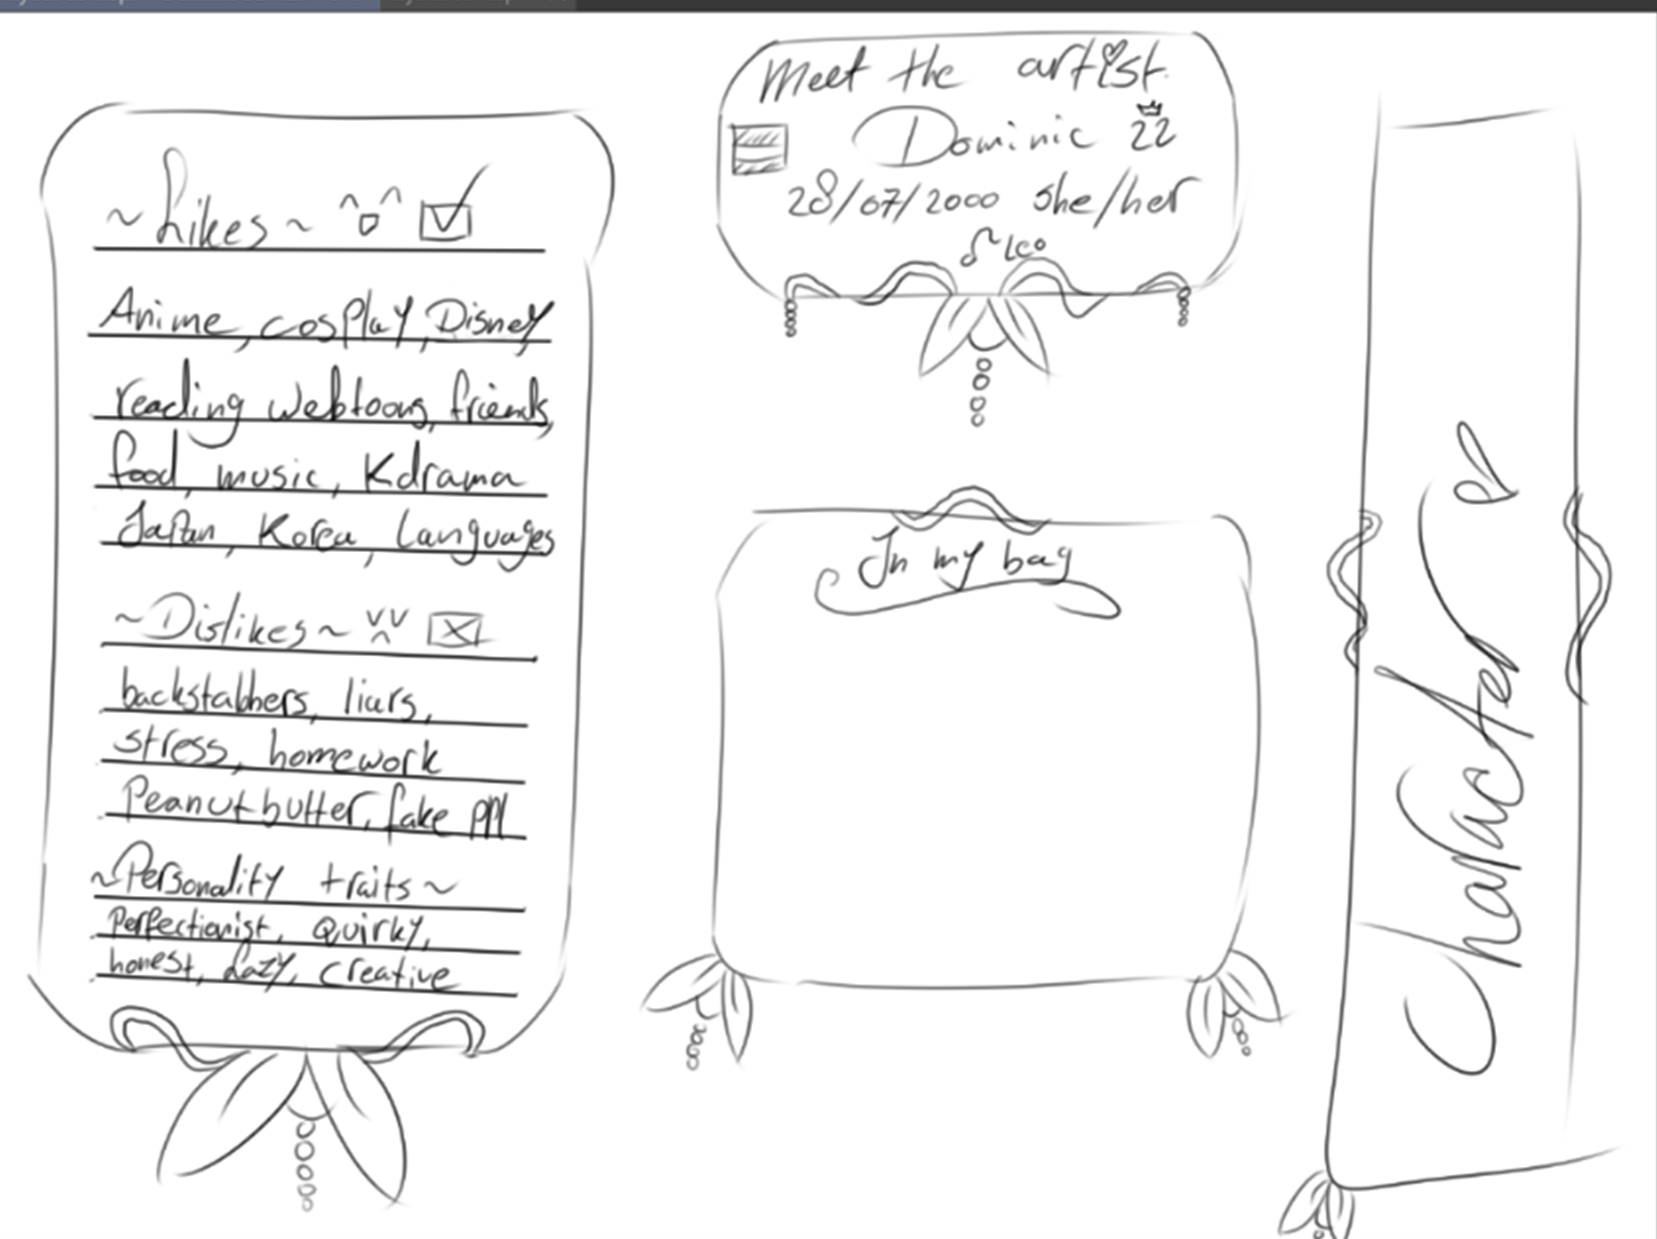 ~Likes~
Anime, cosplay, Disney,
reading webtoons, friends,
food, music, Kdrama
Japan, Korea, Languages
~Dislikes~
backstabbers, liars,
stress, homework
Peanutbutter, fake ppl
~Personality traits~
Perfectionist, Quirky,
honest, Lazy, creative
Meet the artist
Dominic 22
28/07/2000 she/her
♌ Leo
In my bag
Character